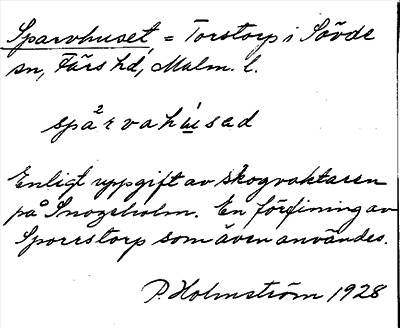 Sparvhuset = Torstorp i Sövde
sn, Färs hd, Malm. l.
spa²rvahu̲sad
Enligt uppgift av skogvaktaren
på Snogeholm. En förfining av
Sporrstorp som även användes.
P. Holmström 1928